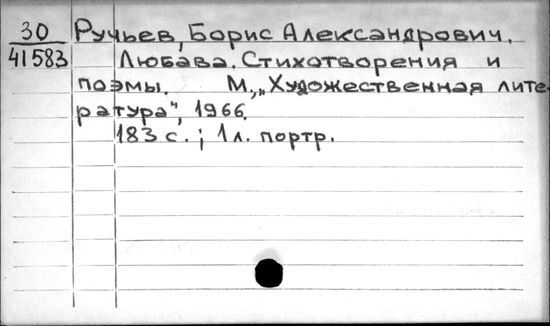 30 Ручьев, Борис Александрович.
41583 Любава. Стихотворения и
поэмы. М., „Художественная лите-
ратура", 1966.
183 с.; 1 л. портр.